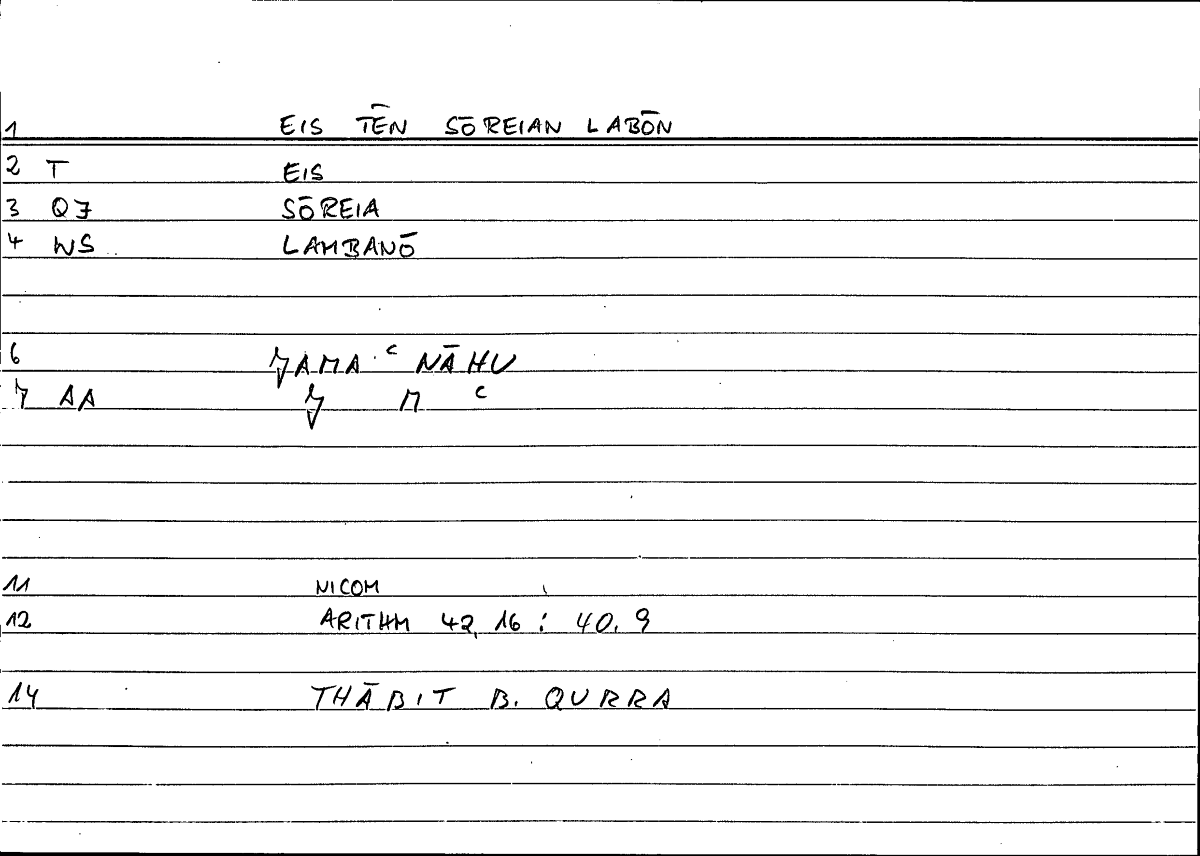 1 EIS TĒN SŌREIAN LABŌN
2 T EIS
3 QJ SŌREIA
4 WS LAMBANŌ
6 ǦAMAʿNĀHU
7 AA Ǧ M ʿ
11 NICOM
12 ARITHM 42,16 : 40,9
14 THĀBIT B. QURRA